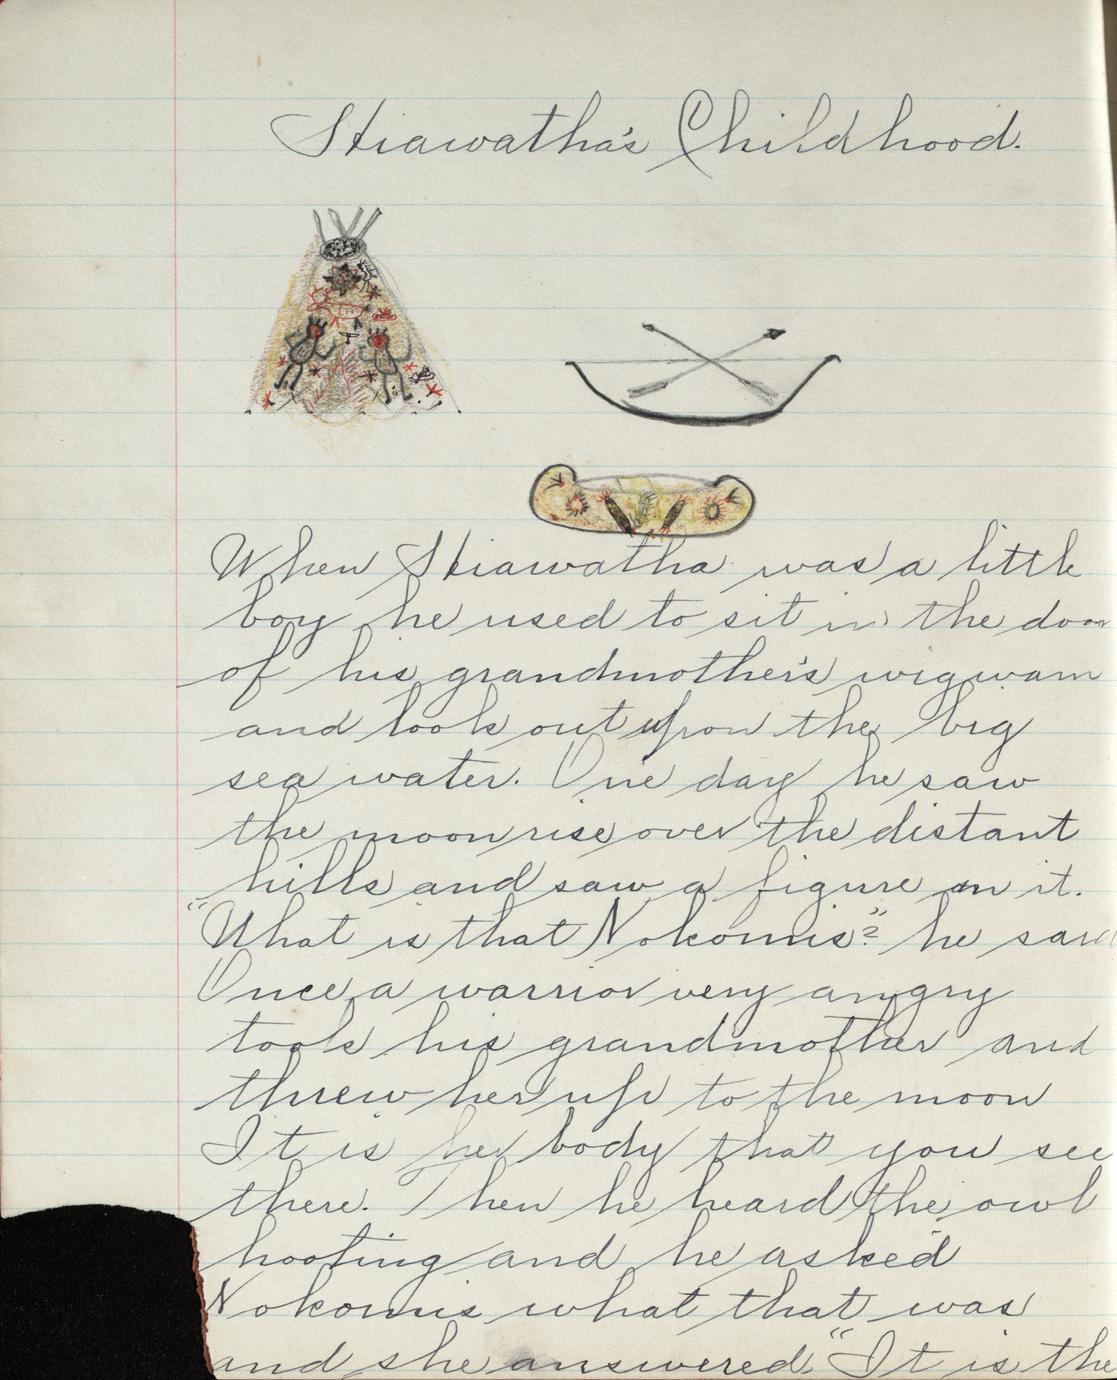 Hiawatha's Childhood.
When Hiawatha was a little
boy he used to sit in the door
of his grandmother's wigwam
and look out upon the big
sea water. One day he saw
the moon rise over the distant
hills and saw a figure on it.
"What is that Nokomis?" he said
Once a warrior very angry
took his grandmother and
threw her up to the moon
It is her body that you see
there. Then he heard the owl
hooting and he asked
Nokomis what that was
and she answered "It is the